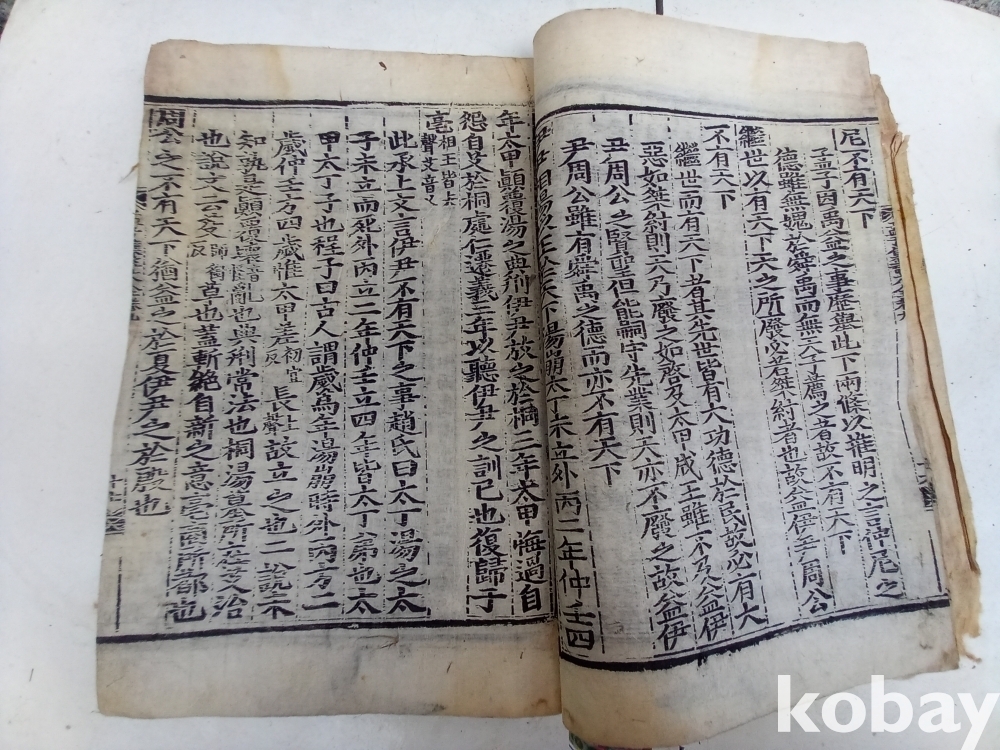 尼不有天下
孟子因禹益之事歷擧此下兩條以推明之言仲尼之
德雖無愧於舜禹而無天子薦之者故不有天下
繼世以有天下天之所廢必若桀紂者也故益伊尹周公
不有天下
繼世而有天下者其先世皆有大功德於民故必有大
惡如桀紂則天乃廢之如啓及太甲成王雖不及益伊
尹周公之賢聖但能嗣守先業則天亦不廢之故益伊
尹周公雖有舜禹之德而亦不有天下
伊尹相湯以王於天下湯崩太丁未立外丙二年仲壬四
年太甲顚覆湯之典刑伊尹放之於桐三年太甲悔過自
怨自艾於桐處仁遷義三年以聽伊尹之訓己也復歸于
亳相王皆去聲艾音乂
此承上文言伊尹不有天下之事趙氏曰太丁湯之太
子未立而死外丙立二年仲壬立四年皆太丁弟也太
甲太丁子也程子曰古人謂歲爲年湯崩時外丙方二
歲仲壬方四歲惟太甲差初宜反長上聲故立之也二說未
知孰是顚覆壞音怪亂也典刑常法也桐湯墓所在艾治
也說文云芟師銜反草也蓋斬絶自新之意亳商所都也
周公之不有天下猶益之於夏伊尹之於殷也
kobay